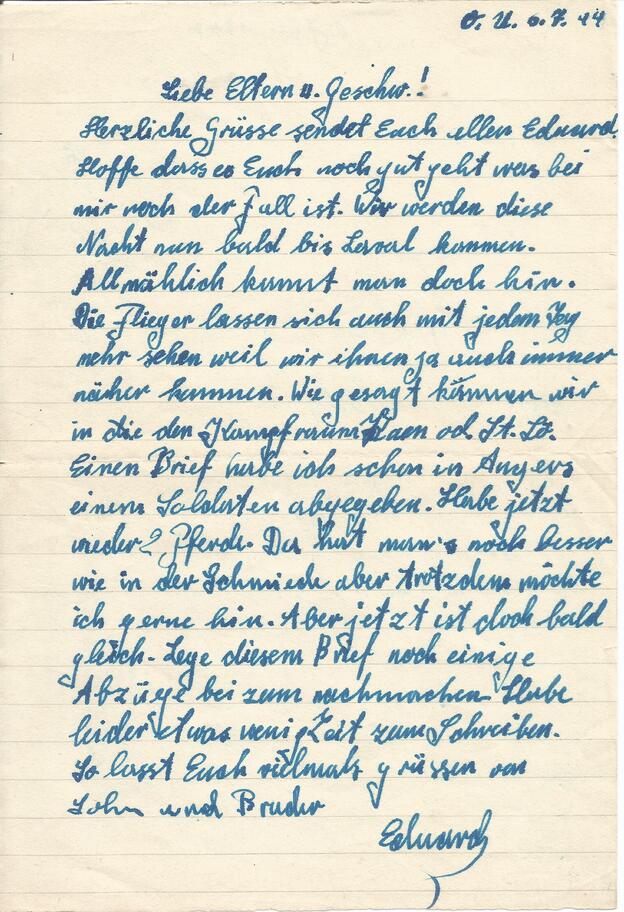 O. U. 6.7.44
Liebe Eltern u. Geschw.!
Herzliche Grüsse sendet Euch allen Eduard.
Hoffe dass es Euch noch gut geht was bei
mir noch der Fall ist. Wir werden diese
Nacht nun bald bis Laval kommen.
Allmählich kommt man doch hin.
Die Flieger lassen sich auch mit jedem Tag
mehr sehen weil wir ihnen ja auch immer
näher kommen. Wie gesagt kommen wir
in die den Kampfraum Kaen od. St. Lô.
Einen Brief habe ich schon in Angers
einem Soldaten abgegeben. Habe jetzt
wieder 2 Pferde. Da hat man's noch besser
wie in der Schmiede aber trotzdem möchte
ich gerne hin. Aber jetzt ist doch bald
gleich. Lege diesem Brief noch einige
Abzüge bei zum nachmachen. Habe
leider etwas wenig Zeit zum Schreiben.
So lasst Euch vielmals grüssen von
Sohn und Bruder
Eduard